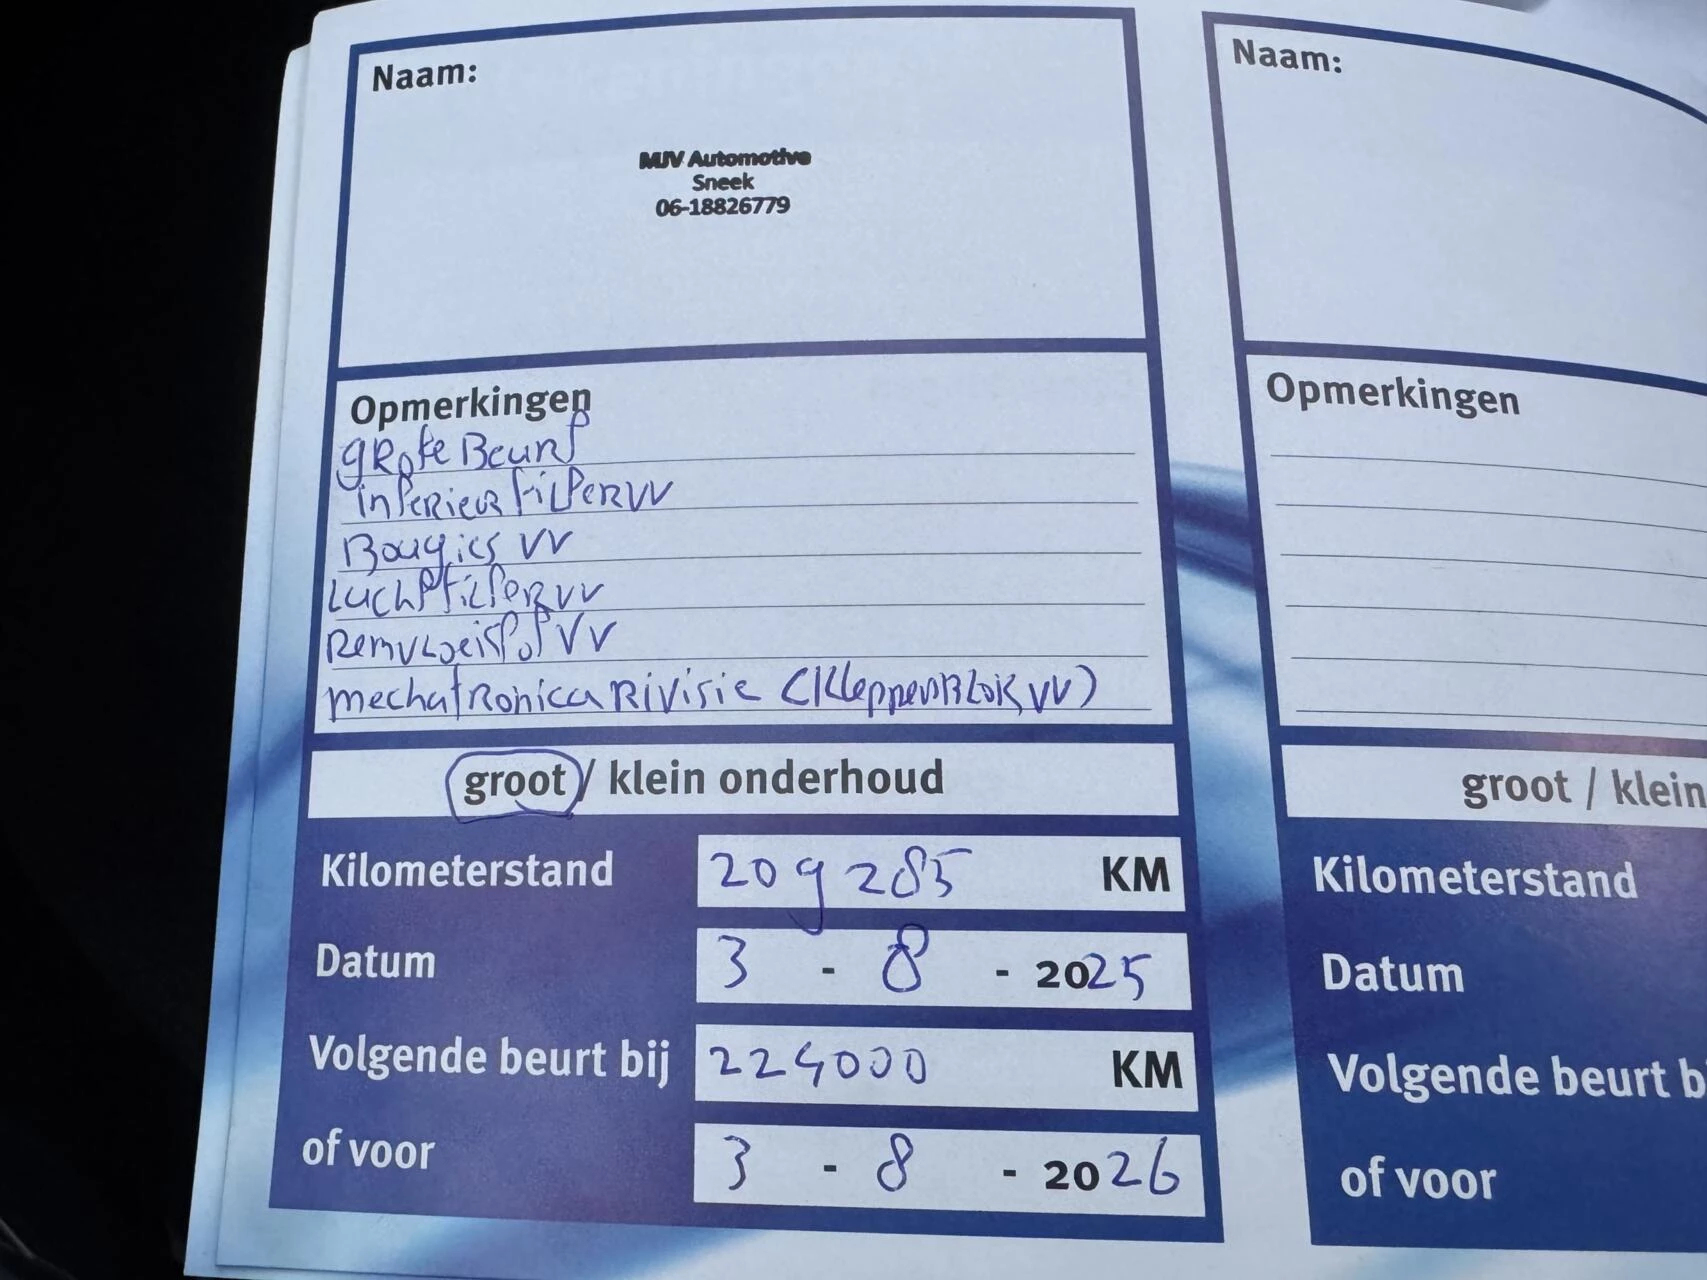 Naam:
MJV Automotive
Sneek
06-18826779
Opmerkingen
gRote Beurt
inteRieuR filteR vv
Bougies vv
LuchtfilteR vv
RemvLoeistof vv
mechatRonica Rivisie (KleppenBLoK vv)
groot / klein onderhoud
Kilometerstand 209285 KM
Datum 3 - 8 - 2025
Volgende beurt bij 224000 KM
of voor 3 - 8 - 2026
Naam:
Opmerkingen
groot / klein
Kilometerstand
Datum
Volgende beurt b
of voor